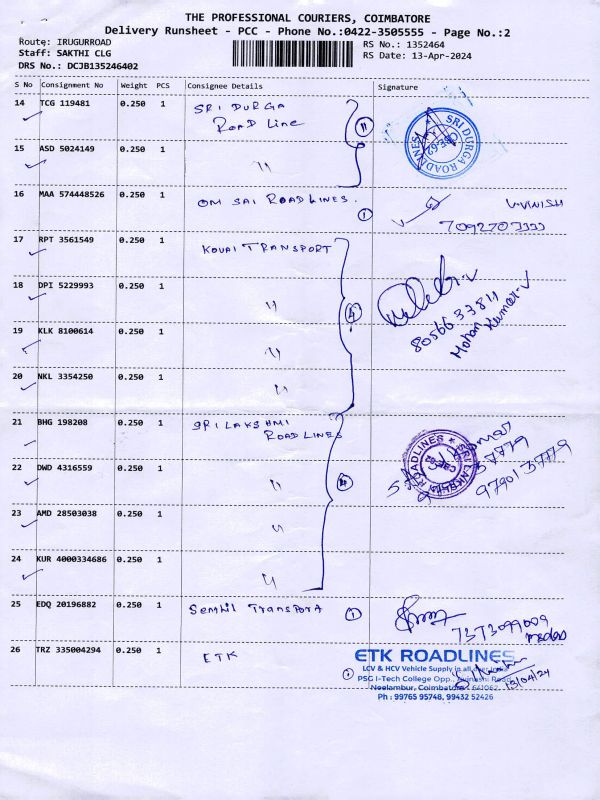 THE PROFESSIONAL COURIERS, COIMBATORE
Delivery Runsheet - PCC - Phone No.:0422-3505555 - Page No.:2
Route: IRUGURROAD
Staff: SAKTHI CLG
DRS No.: DCJB135246402
RS No.: 1352464
RS Date: 13-Apr-2024
S No Consignment No Weight PCS Consignee Details Signature
14 TCG 119481 0.250 1 SRI DURGA
ROAD LINE
11
SRI DURGA ROADLINES
CBE-62
15 ASD 5024149 0.250 1 "
16 MAA 574448526 0.250 1 OM SAI ROADLINES.
1
V.VINISH
17 RPT 3561549 0.250 1 KOVAI TRANSPORT
18 DPI 5229993 0.250 1 "
4
80566 33811
Mohan Kumar-V
19 KLK 8100614 0.250 1 "
20 NKL 3354250 0.250 1 "
21 BHG 198208 0.250 1 SRI LAKSHMI
ROADLINES
SRI LAKSHMI ROADLINES
97901 37779
22 DWD 4316559 0.250 1 "
23 AMD 28503038 0.250 1 "
24 KUR 4000334686 0.250 1 "
25 EDQ 20196882 0.250 1 Senthil Transport
1
7373099009
26 TRZ 335004294 0.250 1 ETK
1
ETK ROADLINES
LCV & HCV Vehicle Supply in all over India
PSG I-Tech College Opp., Avinashi Road,
Neelambur, Coimbatore - 641062.
Ph : 99765 95748, 99432 52426
13/04/24